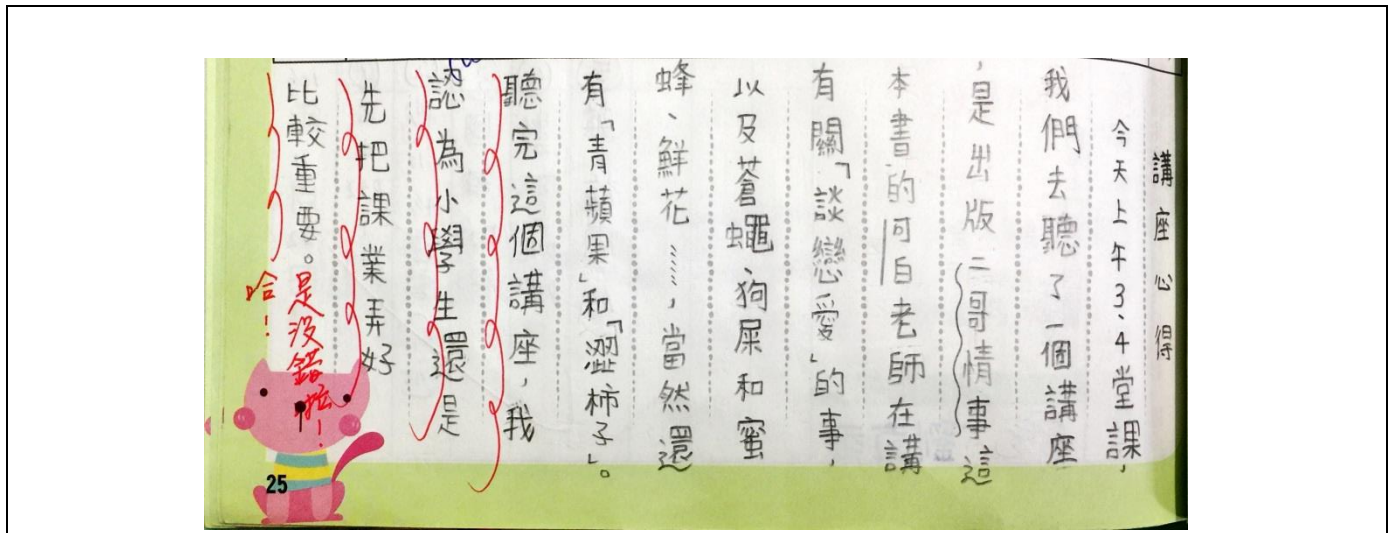 講座心得
今天上午3、4堂課,
我們去聽了一個講座
,是出版二哥情事這
本書的可白老師在講
有關「談戀愛」的事,
以及蒼蠅、狗屎和蜜
蜂、鮮花……,當然還
有「青蘋果」和「澀柿子」。
聽完這個講座,我
認為小學生還是
先把課業弄好
比較重要。
是沒錯啦!
哈!
25